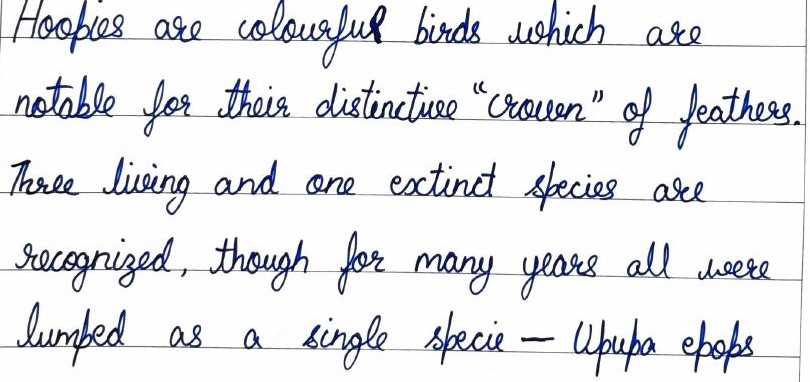 Hoopies are colourful birds which are
notable for their distinctive "crown" of feathers.
Three living and one exctinct species are
recognized, though for many years all were
lumped as a single specie – Upupa epops